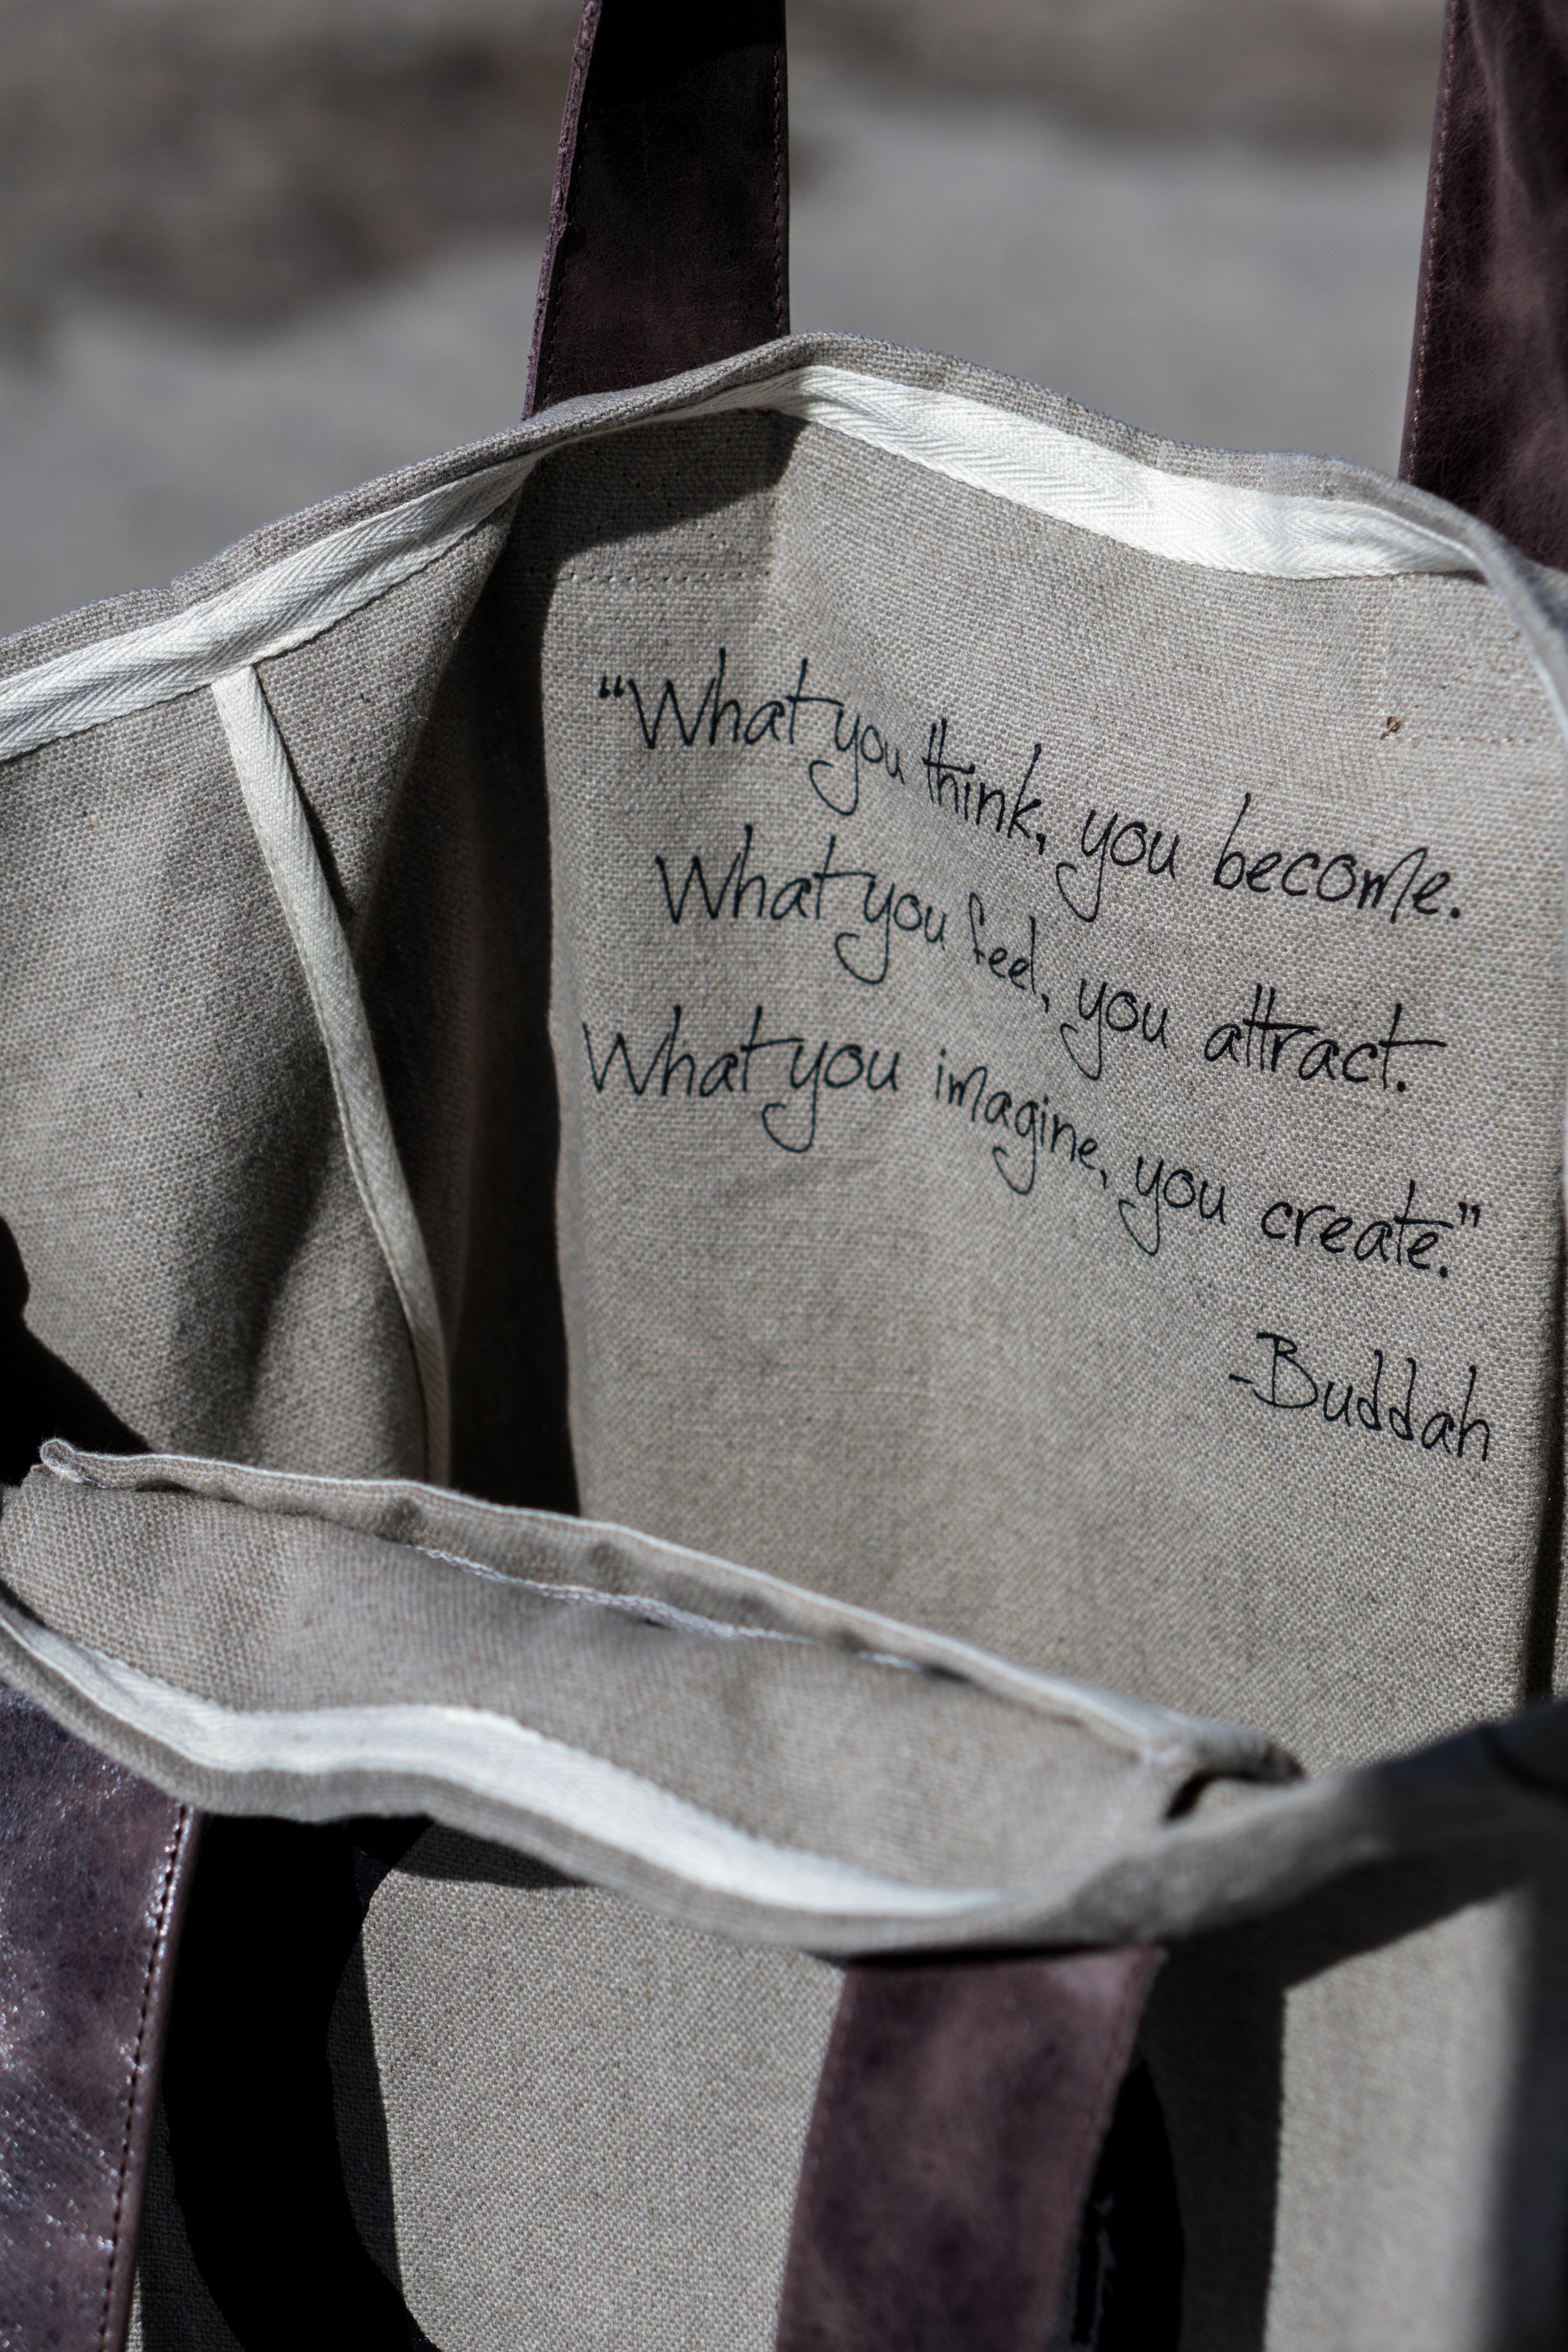 “What you think, you become.
What you feel, you attract.
What you imagine, you create.”
-Buddah